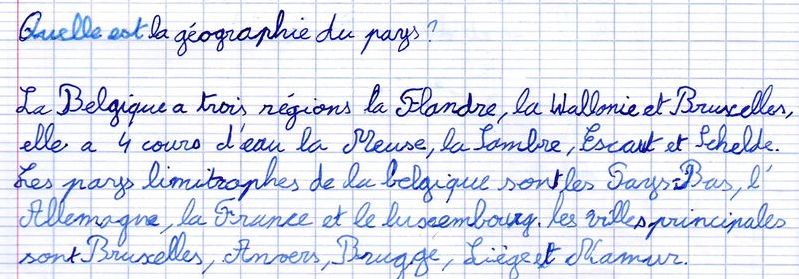 Quelle est la géographie du pays ?
La Belgique a trois régions la Flandre, la Wallonie et Bruxelles,
elle a 4 cours d'eau la Meuse, la Sambre, Escaut et Schelde.
Les pays limitrophes de la belgique sont les Pays-Bas, l'
Allemagne, la France et le luxembourg. les villes principales
sont Bruxelles, Anvers, Brugge, Liège et Namur.